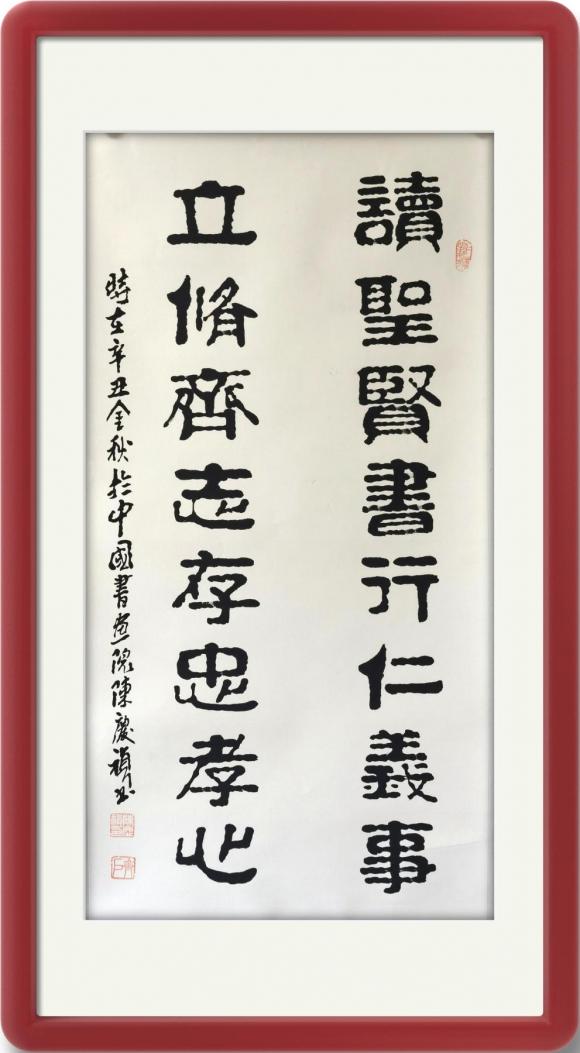 讀聖賢書行仁義事
立脩齊志存忠孝心
時在辛丑金秋於中國書画院陳慶禎书